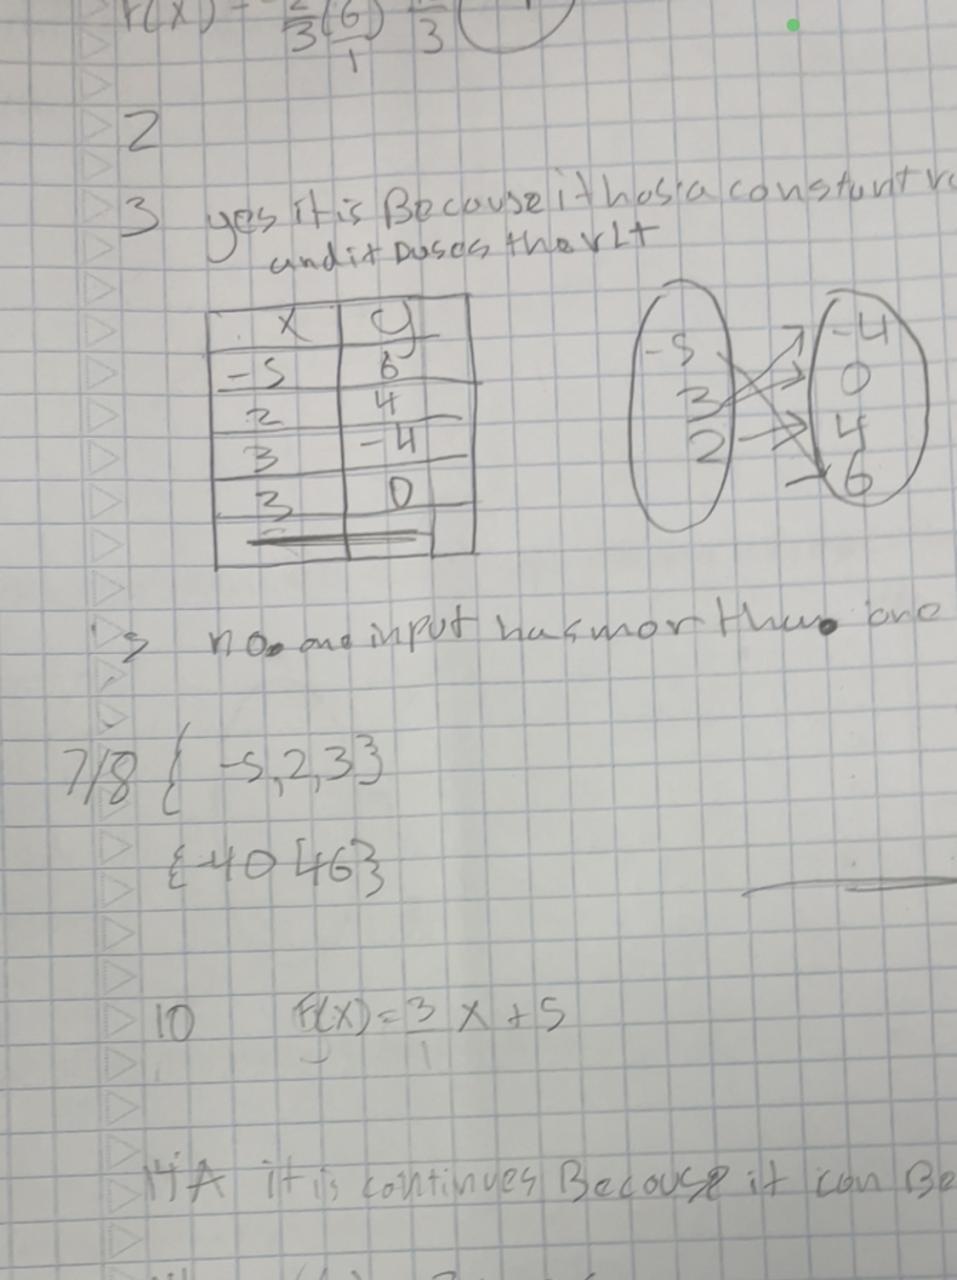 f(x) = 2/3 (6/1) 12/3
2
3 yes it is Because it has a constant
and it Duses the vlt
x y
-5 6
2 4
3 -4
3 0
-5 -4
3 0
2 4
6
5 no one input has mor than one
7/8 { -5,2,3}
{-40 46}
10 f(x)=3/1 x+5
14A it is continues Because it can Be